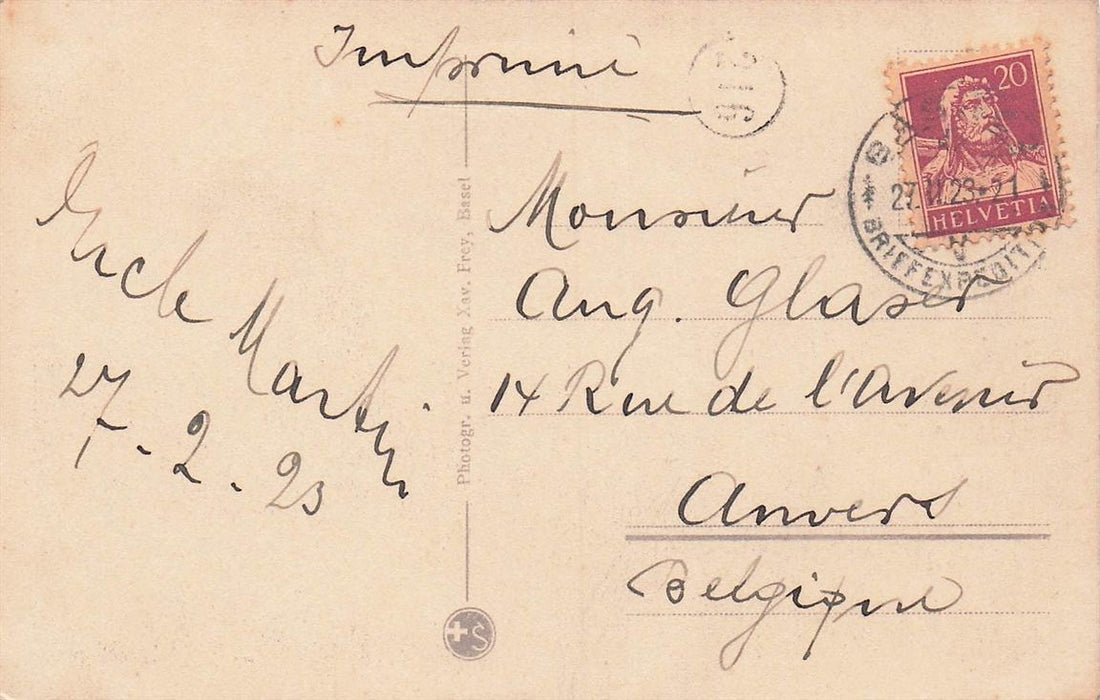 Imprimé
20
HELVETIA
27.II.23-21
BRIEFEXPEDIT
Monsieur
Aug. Glaser
14 Rue de l'Avenir
Anvers
Belgique
Martin
27-2-23
Photogr. u. Verlag Xav. Frey, Basel
S